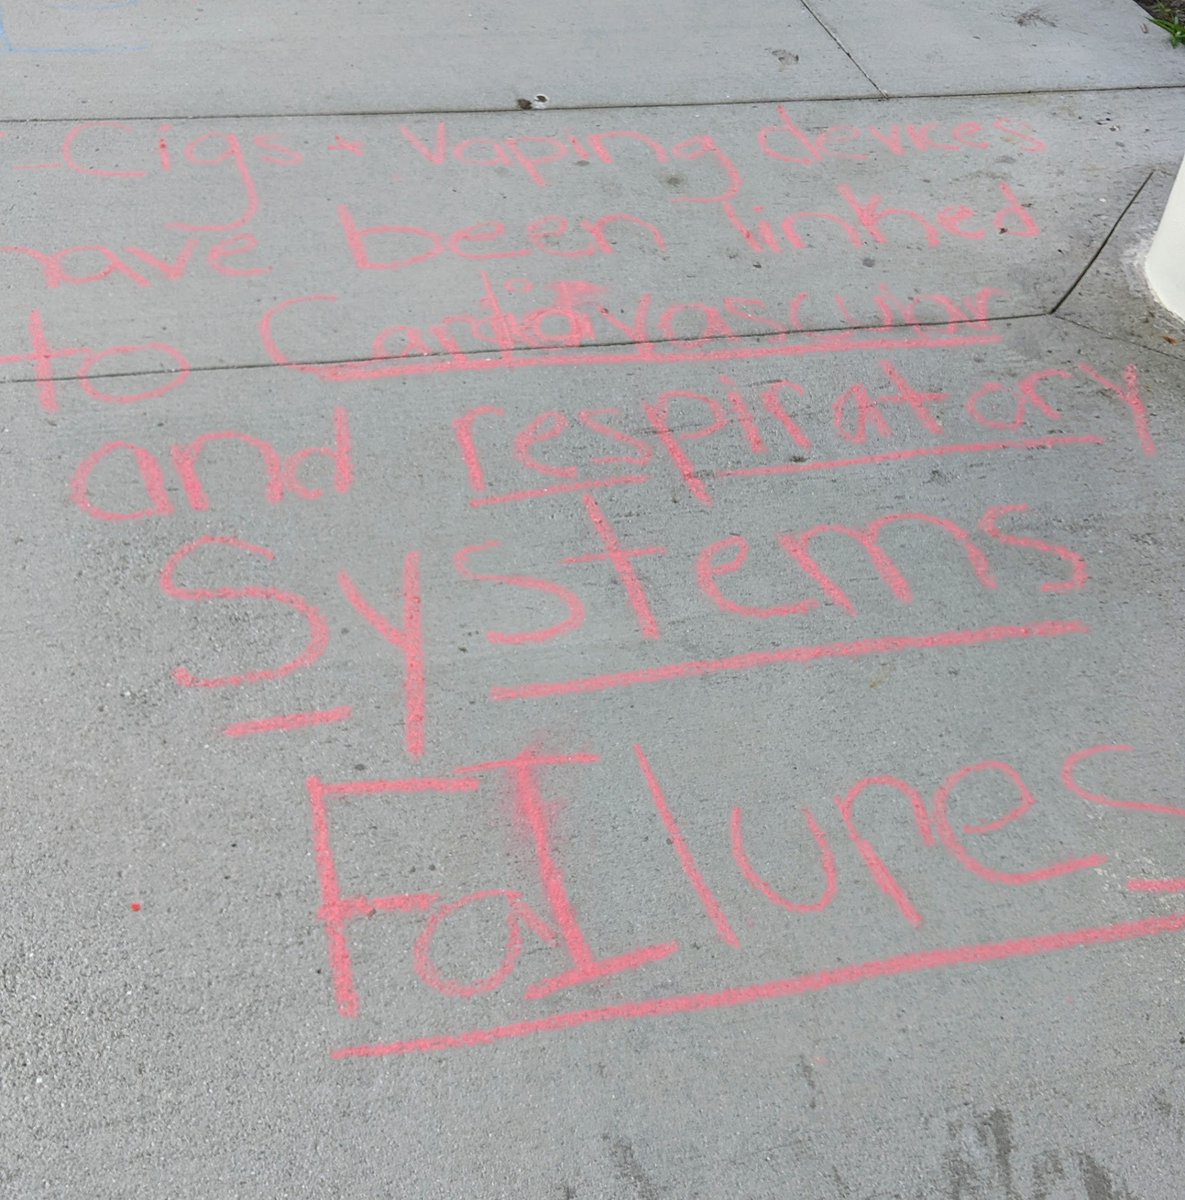 -Cigs + Vaping devices
have been linked
to Cardiovascular
and respiratory
Systems
FaIlures